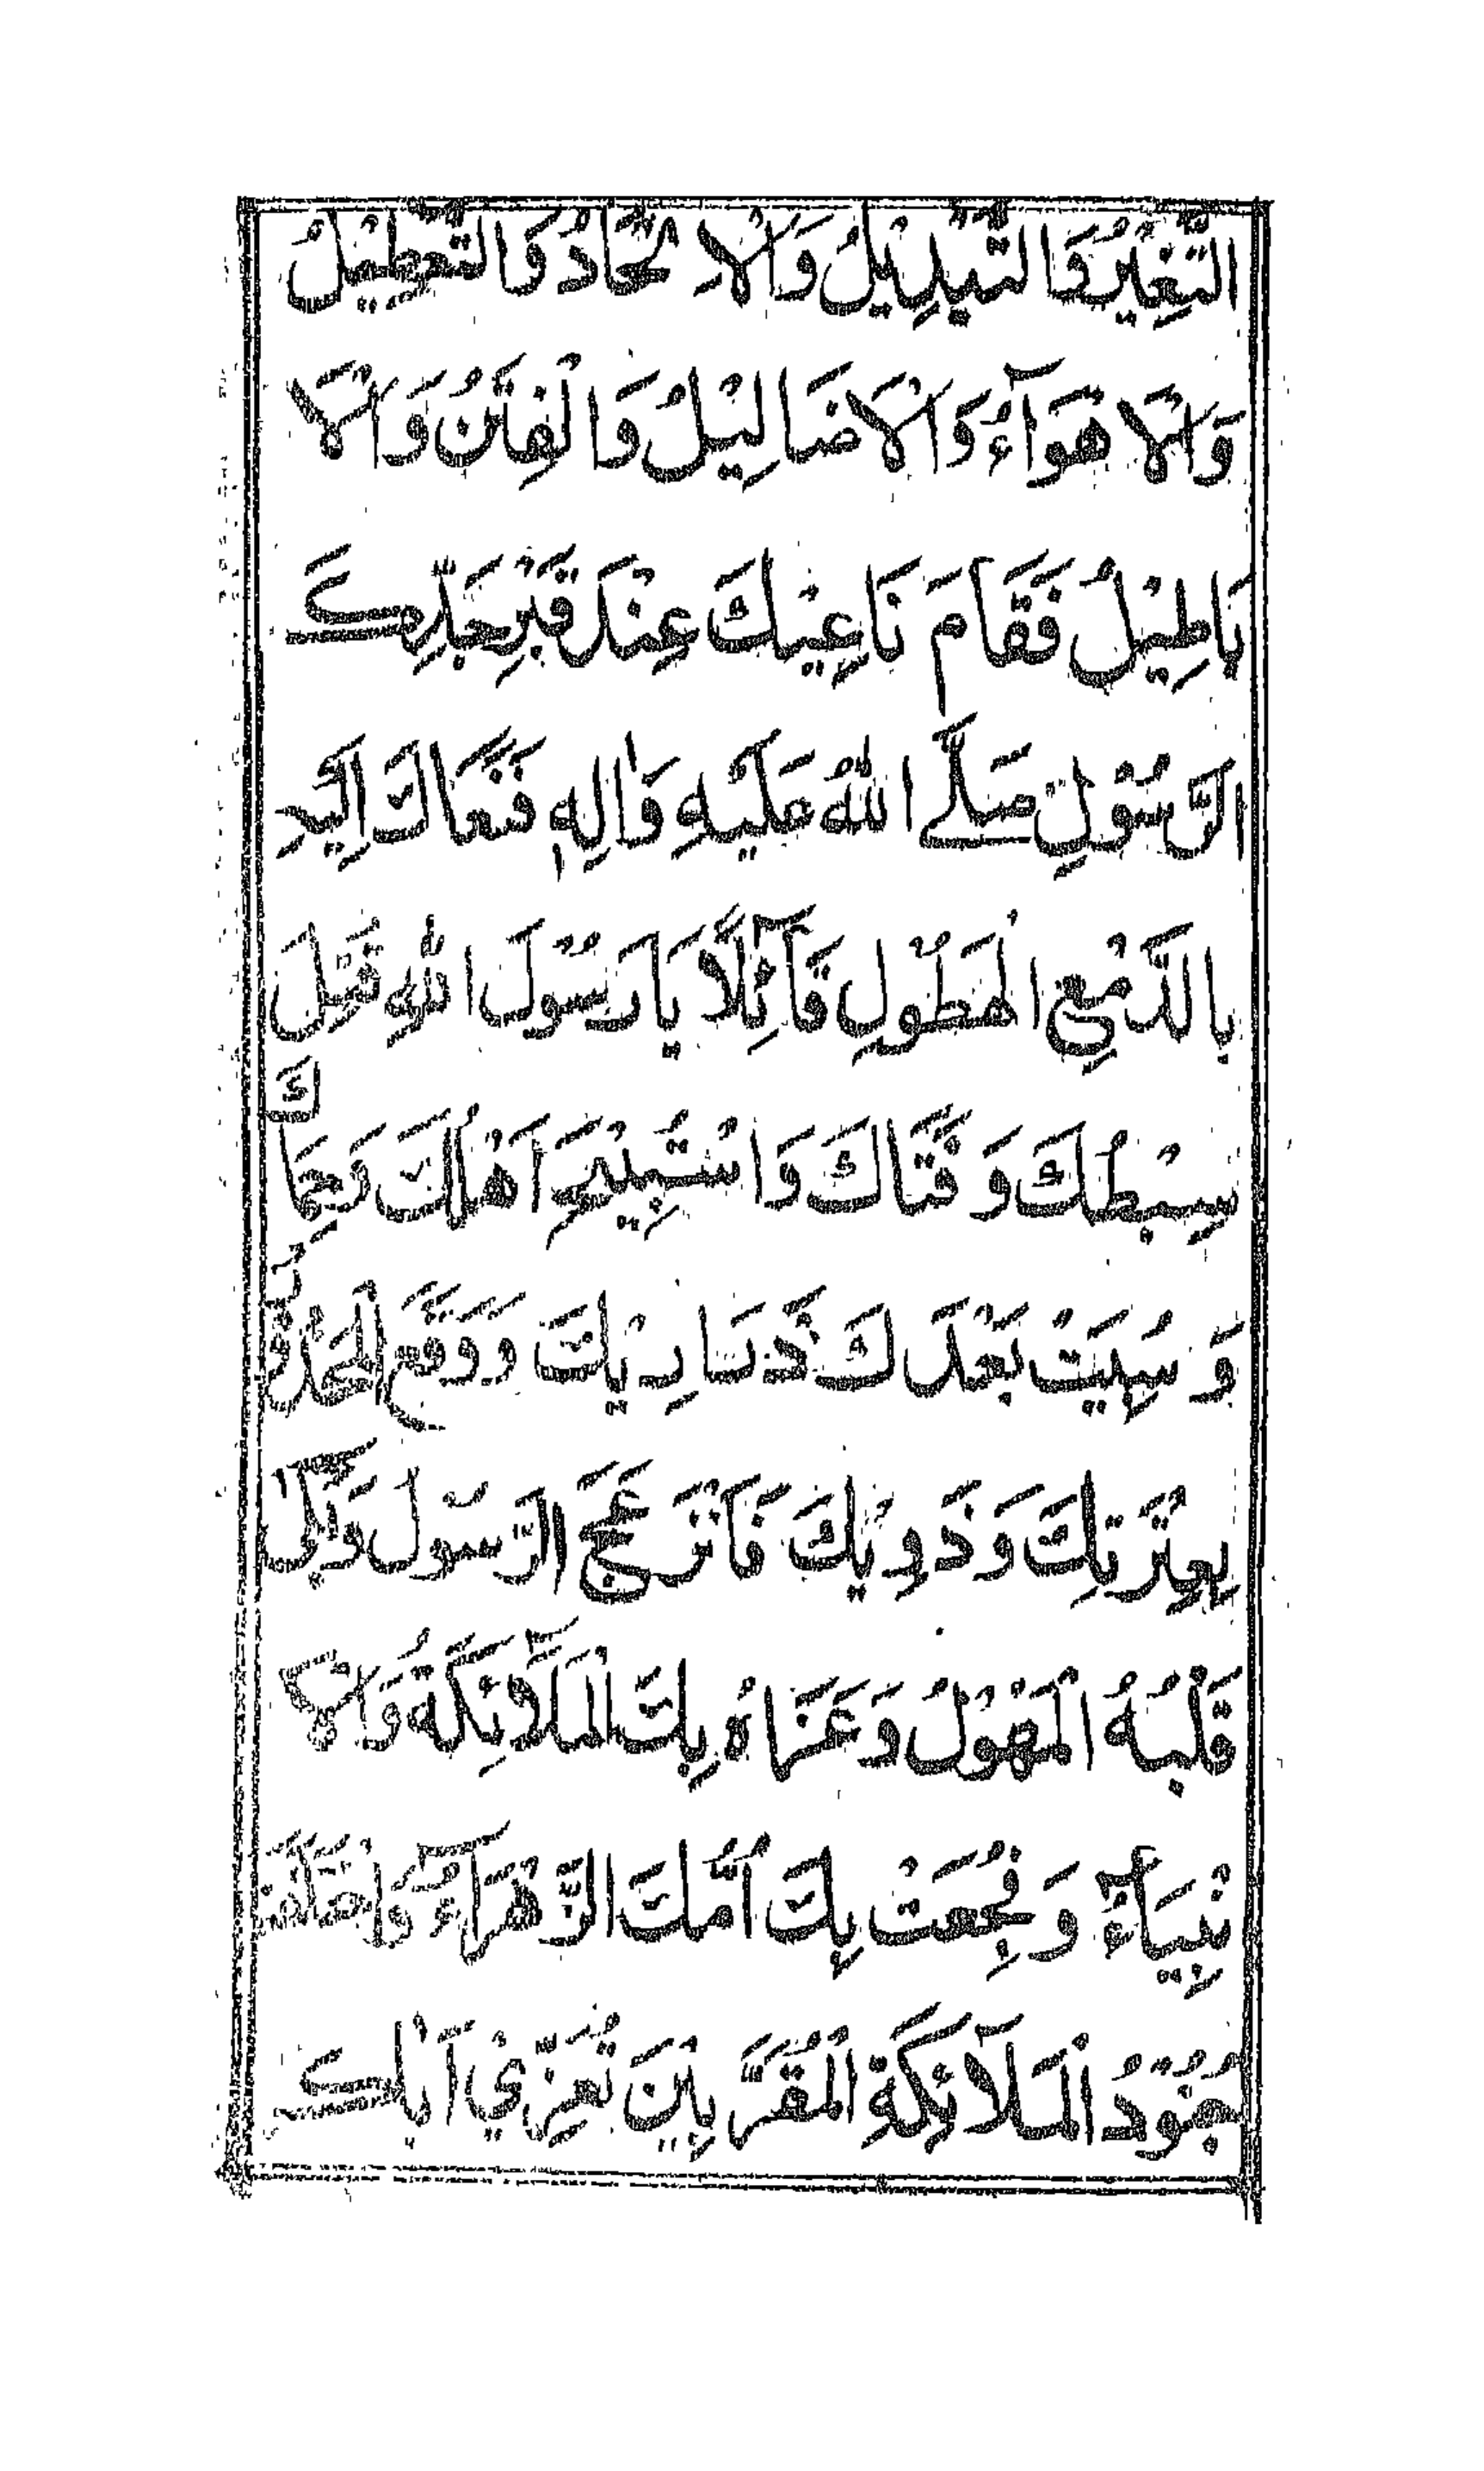 التَّغْيِيْرُ وَالتَّبْدِيْلُ وَالْاِلْحَادُ وَالتَّعْطِيْلُ
وَالْاَهْوَآءُ وَالْاَضَالِيْلُ وَالْفِتَنُ وَالْاَ
بَاطِيْلُ فَقَامَ نَاعِيْكَ عِنْدَ قَبْرِ جَدِّكَ
الرَّسُوْلِ صَلَّى اللهُ عَلَيْهِ وَاٰلِهٖ فَنَعَاكَ اِلَيْهِ
بِالدَّمْعِ الْهَطُوْلِ قَآئِلًا يَا رَسُوْلَ اللهِ قُتِلَ
سِبْطُكَ وَفَتَاكَ وَاسْتُبِيْحَ اَهْلُكَ وَحِمَاكَ
وَسُبِيَتْ بَعْدَكَ ذَرَارِيْكَ وَوَقَعَ الْمَحْذُوْرُ
بِعِتْرَتِكَ وَذَوِيْكَ فَانْزَعَجَ الرَّسُوْلُ وَبَكٰى
قَلْبُهُ الْمَهُوْلُ وَعَزَّاهُ بِكَ الْمَلَآئِكَةُ وَالْاَ
نْبِيَآءُ وَفُجِعَتْ بِكَ اُمُّكَ الزَّهْرَآءُ وَاخْتَلَفَ
جُنُوْدُ الْمَلَآئِكَةِ الْمُقَرَّبِيْنَ تُعَزِّيْ اَبَاكَ